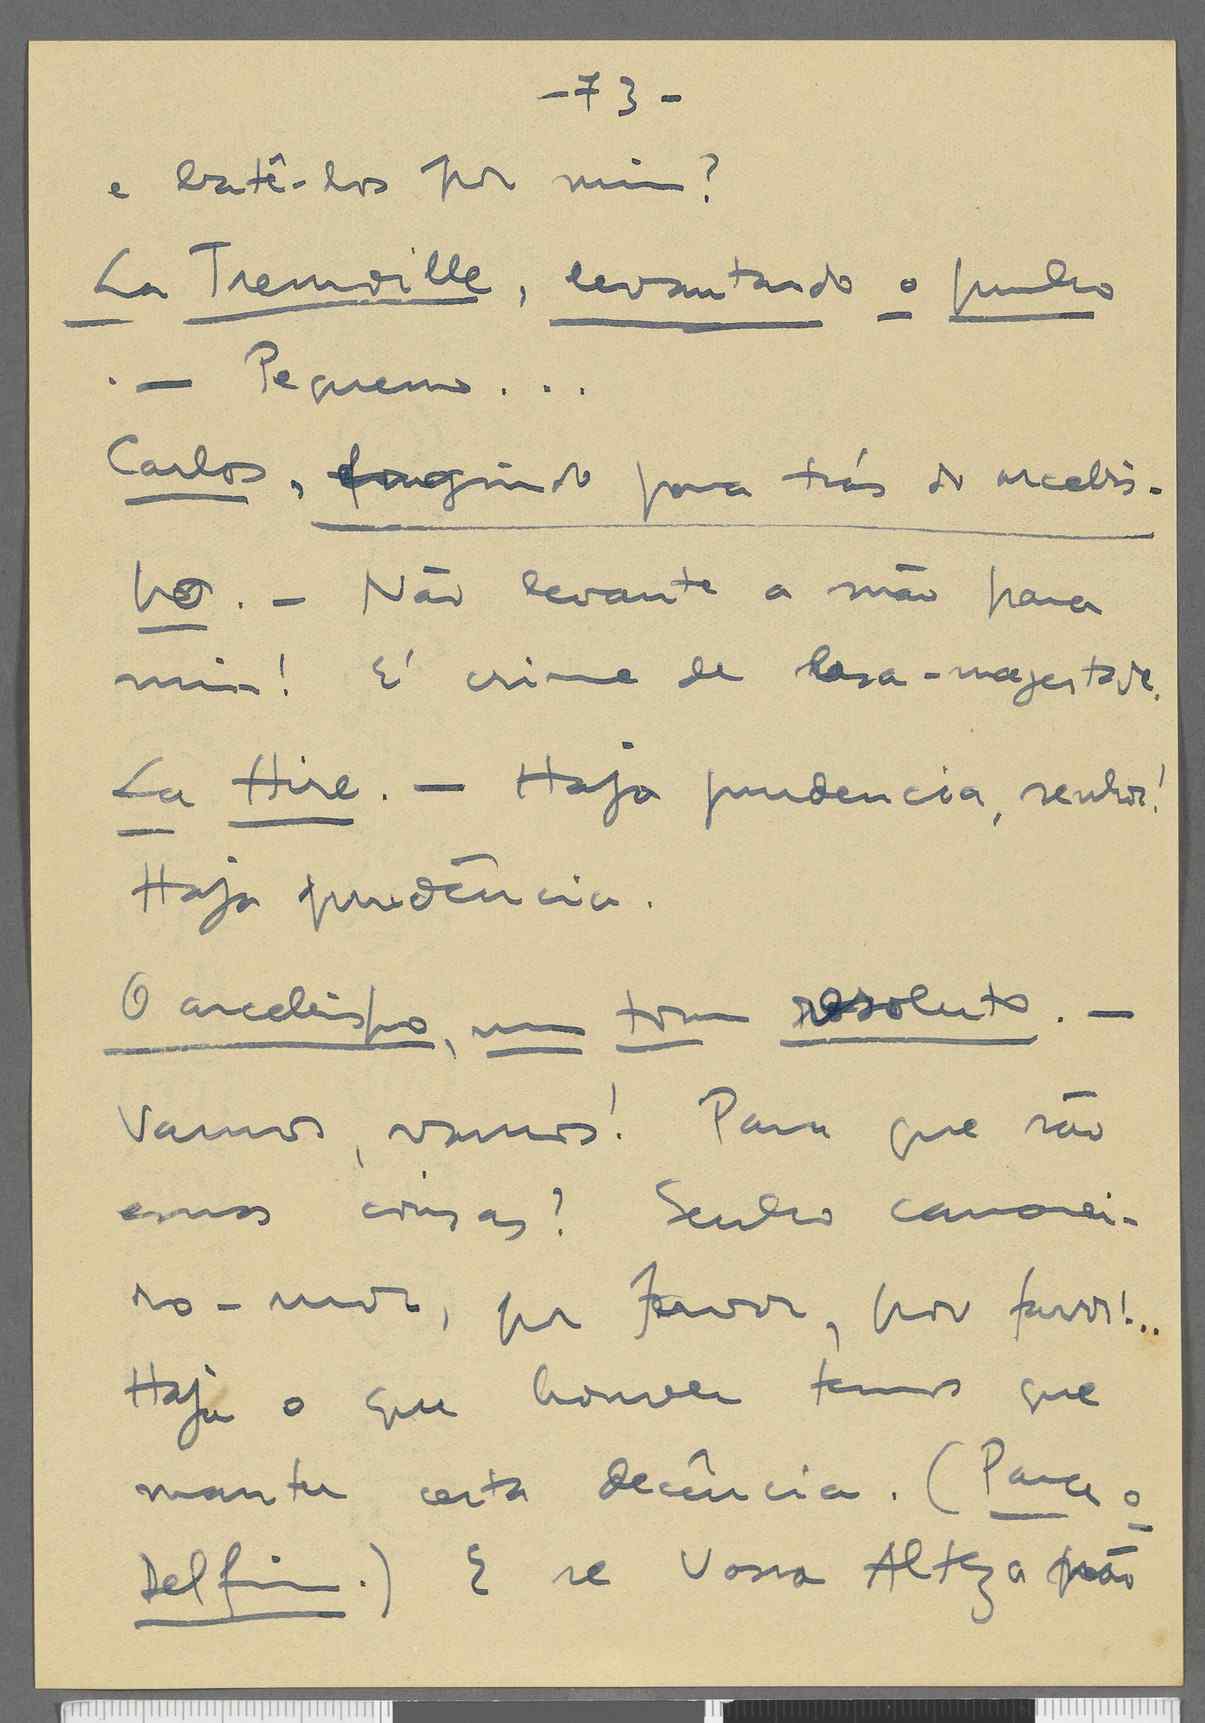 -73-
e batê-los por mim?
La Tremoille, levantando o punho
. — Pequeno...
Carlos, fugindo para trás do arcebis-
po. — Não levante a mão para
mim! É crime de lesa-majestade.
La Hire. — Haja prudencia, senhor!
Haja prudência.
O arcebispo, num tom resoluto. —
Vamos, vamos! Para que são
essas coisas? Senhor camarei-
ro-mor, por favor, por favor!...
Haja o que houver temos que
manter certa decência. (Para o
Delfim.) E se Vossa Alteza não